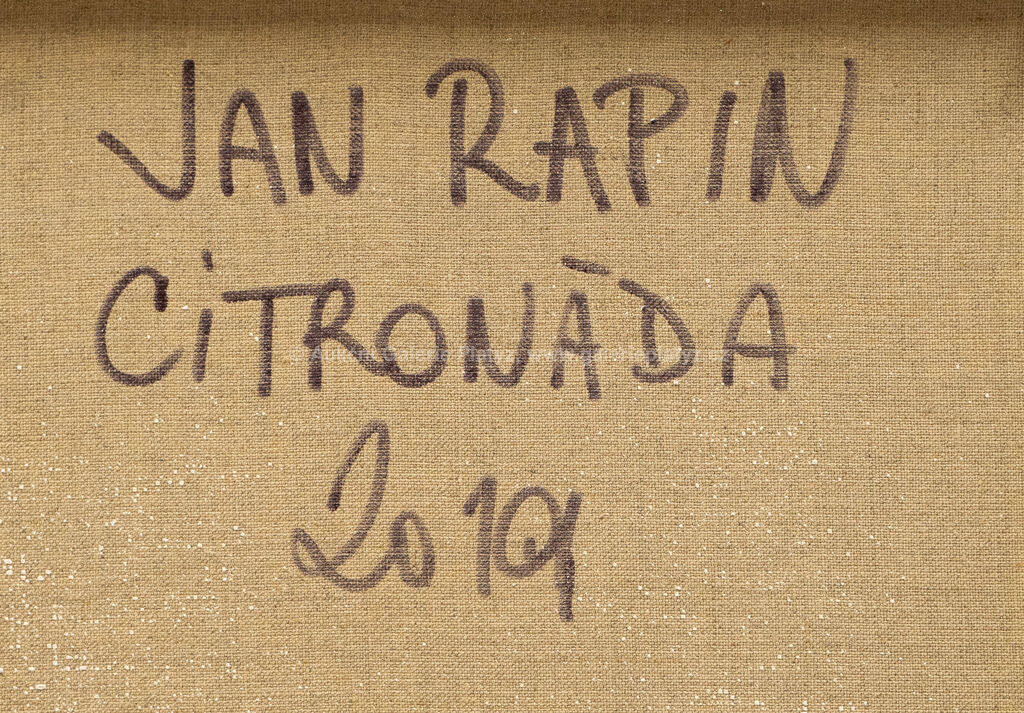 JAN RAPIN
CiTRONÁDA
2019